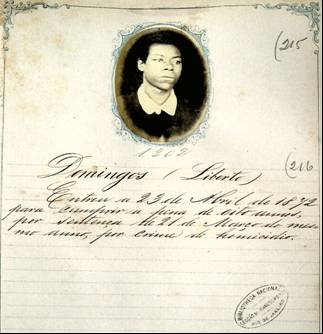 (215
1202
(216
Domingos (Liberto)
Entrou a 23 de Abril de 1872
para cumprir a pena de oito annos,
por sentença de 21 de Março do mes-
mo anno, por crime de homicidio.
BIBLIOTHECA NACIONAL
RIO DE JANEIRO